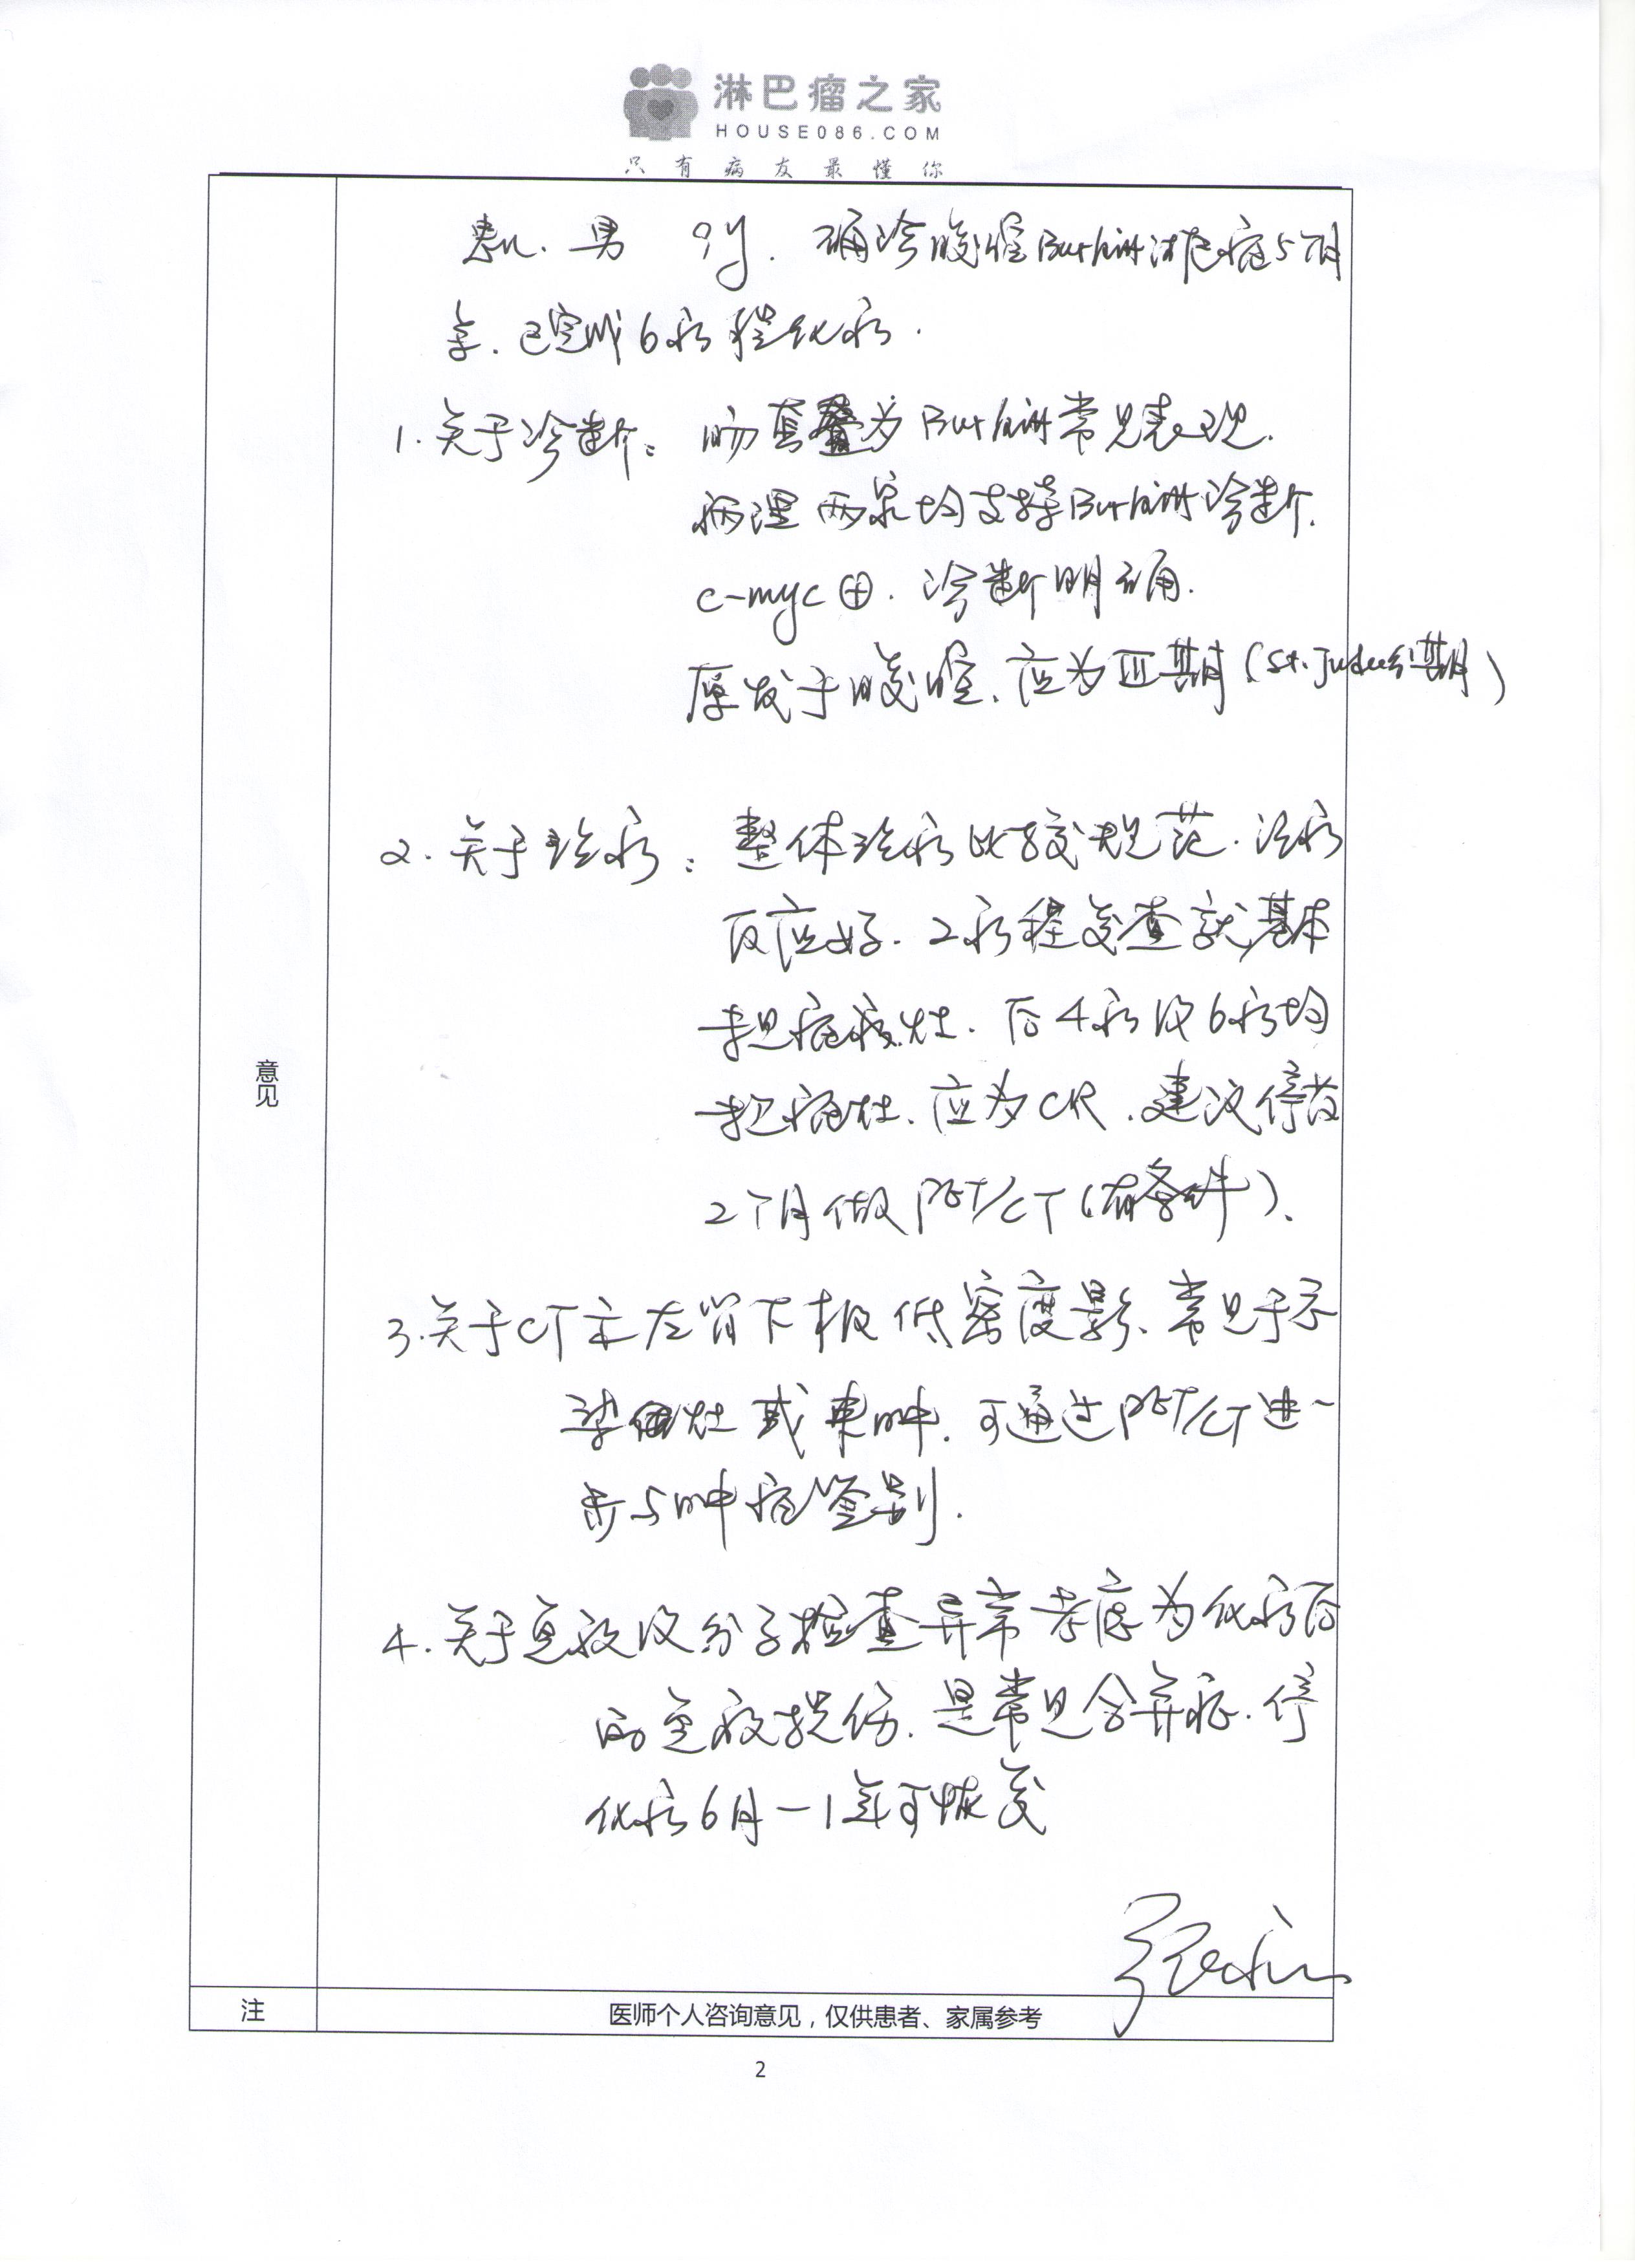 淋巴瘤之家
HOUSE086.COM
只有病友最懂你
患儿.男 9y.确诊腹腔Burkitt淋巴瘤5个月
余.已完成6疗程化疗.
1.关于诊断: 肠套叠为Burkitt常见表现.
病理两家均支持Burkitt诊断.
c-myc⊕.诊断明确.
原发于腹腔.应为Ⅲ期(St.Jude分期)
2.关于治疗: 整体治疗比较规范.治疗
反应好.2疗程复查就基本
未见瘤病灶.后4疗及6疗均
未见瘤灶.应为CR.建议停药
2个月做PET/CT(有条件).
3.关于CT示左肾下极低密度影.常见于
灶或囊肿.可通过PET/CT进一
步与肿瘤鉴别.
4.关于免疫及分子检查异常考虑为化疗后
的免疫损伤.是常见合并症.停
化疗6月-1年可恢复
意见
注
医师个人咨询意见，仅供患者、家属参考
2